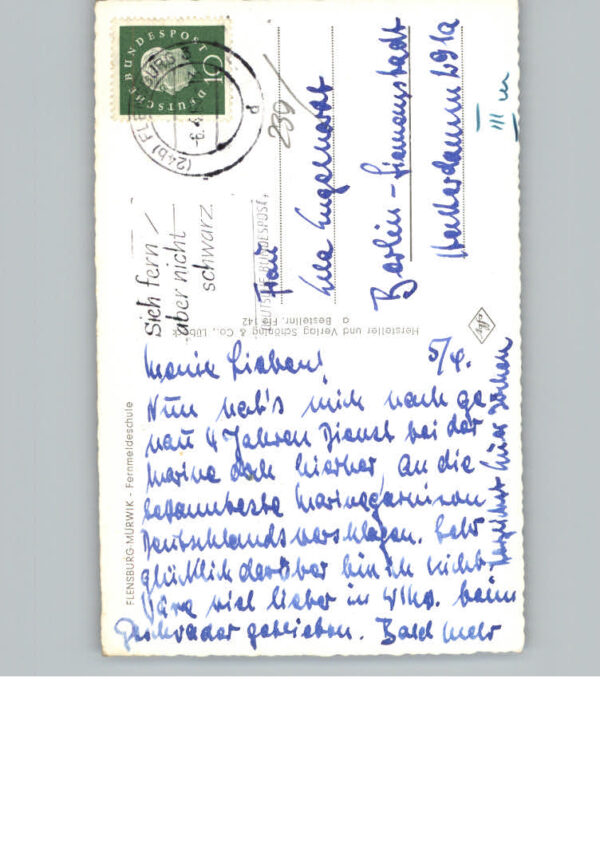 DEUTSCHE BUNDESPOST
10
(24b) FLENSBURG
Sieh fern
aber nicht
schwarz
DEUTSCHE BUNDESPOST
239/
Frau
Engelhardt
Berlin - Siemensstadt
Heckerdamm 291a
III
FLENSBURG-MÜRWIK - Fernmeldeschule
Hersteller und Verlag Schöning & Co., Lübeck
a Bestellnr. Fle 142
Meine Lieben! 5/4.
Nun hat's mich nach ge
nau 4 Jahren Dienst bei der
Marine doch hierher, an die
bekannteste Marinegarnison
Deutschlands verschlagen. Sehr
glücklich darüber bin ich nicht.
Wäre viel lieber in Whv. beim
Geschwader geblieben. Bald mehr
Herzlichst Euer